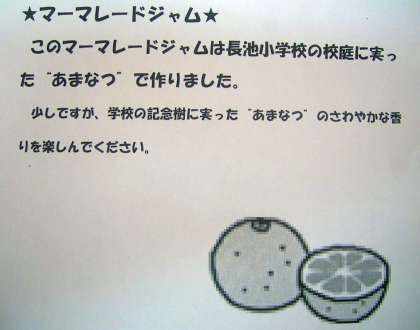 ★マーマレードジャム★
このマーマレードジャムは長池小学校の校庭に実っ
た゛あまなつ゛で作りました。
少しですが、学校の記念樹に実った゛あまなつ゛のさわやかな香
りを楽しんでください。